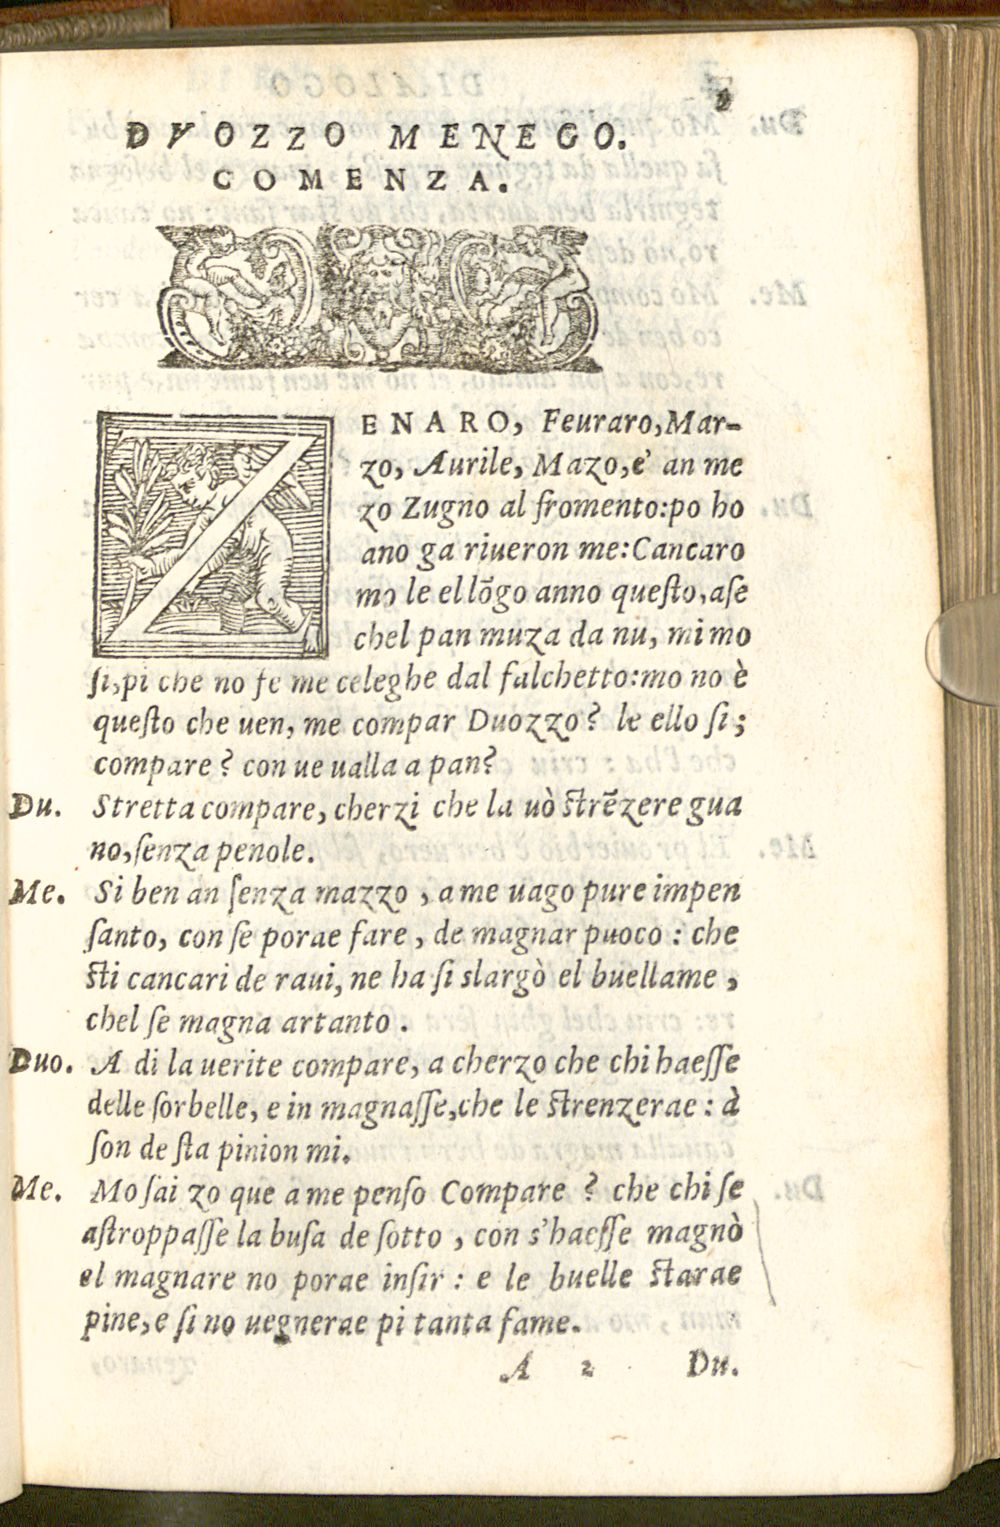 DVOZZO MENEGO.
COMENZA.
ZENARO, Feuraro, Mar-
zo, Aurile, Mazo, e' an me
zo Zugno al fromento: po ho
ano ga riueron me: Cancaro
mo le el lõgo anno questo, ase
chel pan muza da nu, mi mo
si, pi che no fe me celeghe dal falchetto: mo no è
questo che uen, me compar Duozzo? le ello si;
compare? con ue ualla a pan?
Du. Stretta compare, cherzi che la uò strẽzere gua
no, senza penole.
Me. Si ben an senza mazzo, a me uago pure impen
santo, con se porae fare, de magnar puoco: che
sti cancari de raui, ne ha si slargò el buellame,
chel se magna artanto.
Duo. A di la uerite compare, a cherzo che chi haesse
delle sorbelle, e in magnasse, che le strenzerae: à
son de sta pinion mi.
Me. Mo sai zo que a me penso Compare? che chi se
astroppasse la busa de sotto, con s'haesse magnò
el magnare no porae insir: e le buelle starae
pine, e si no uegnerae pi tanta fame.
A 2 Du.